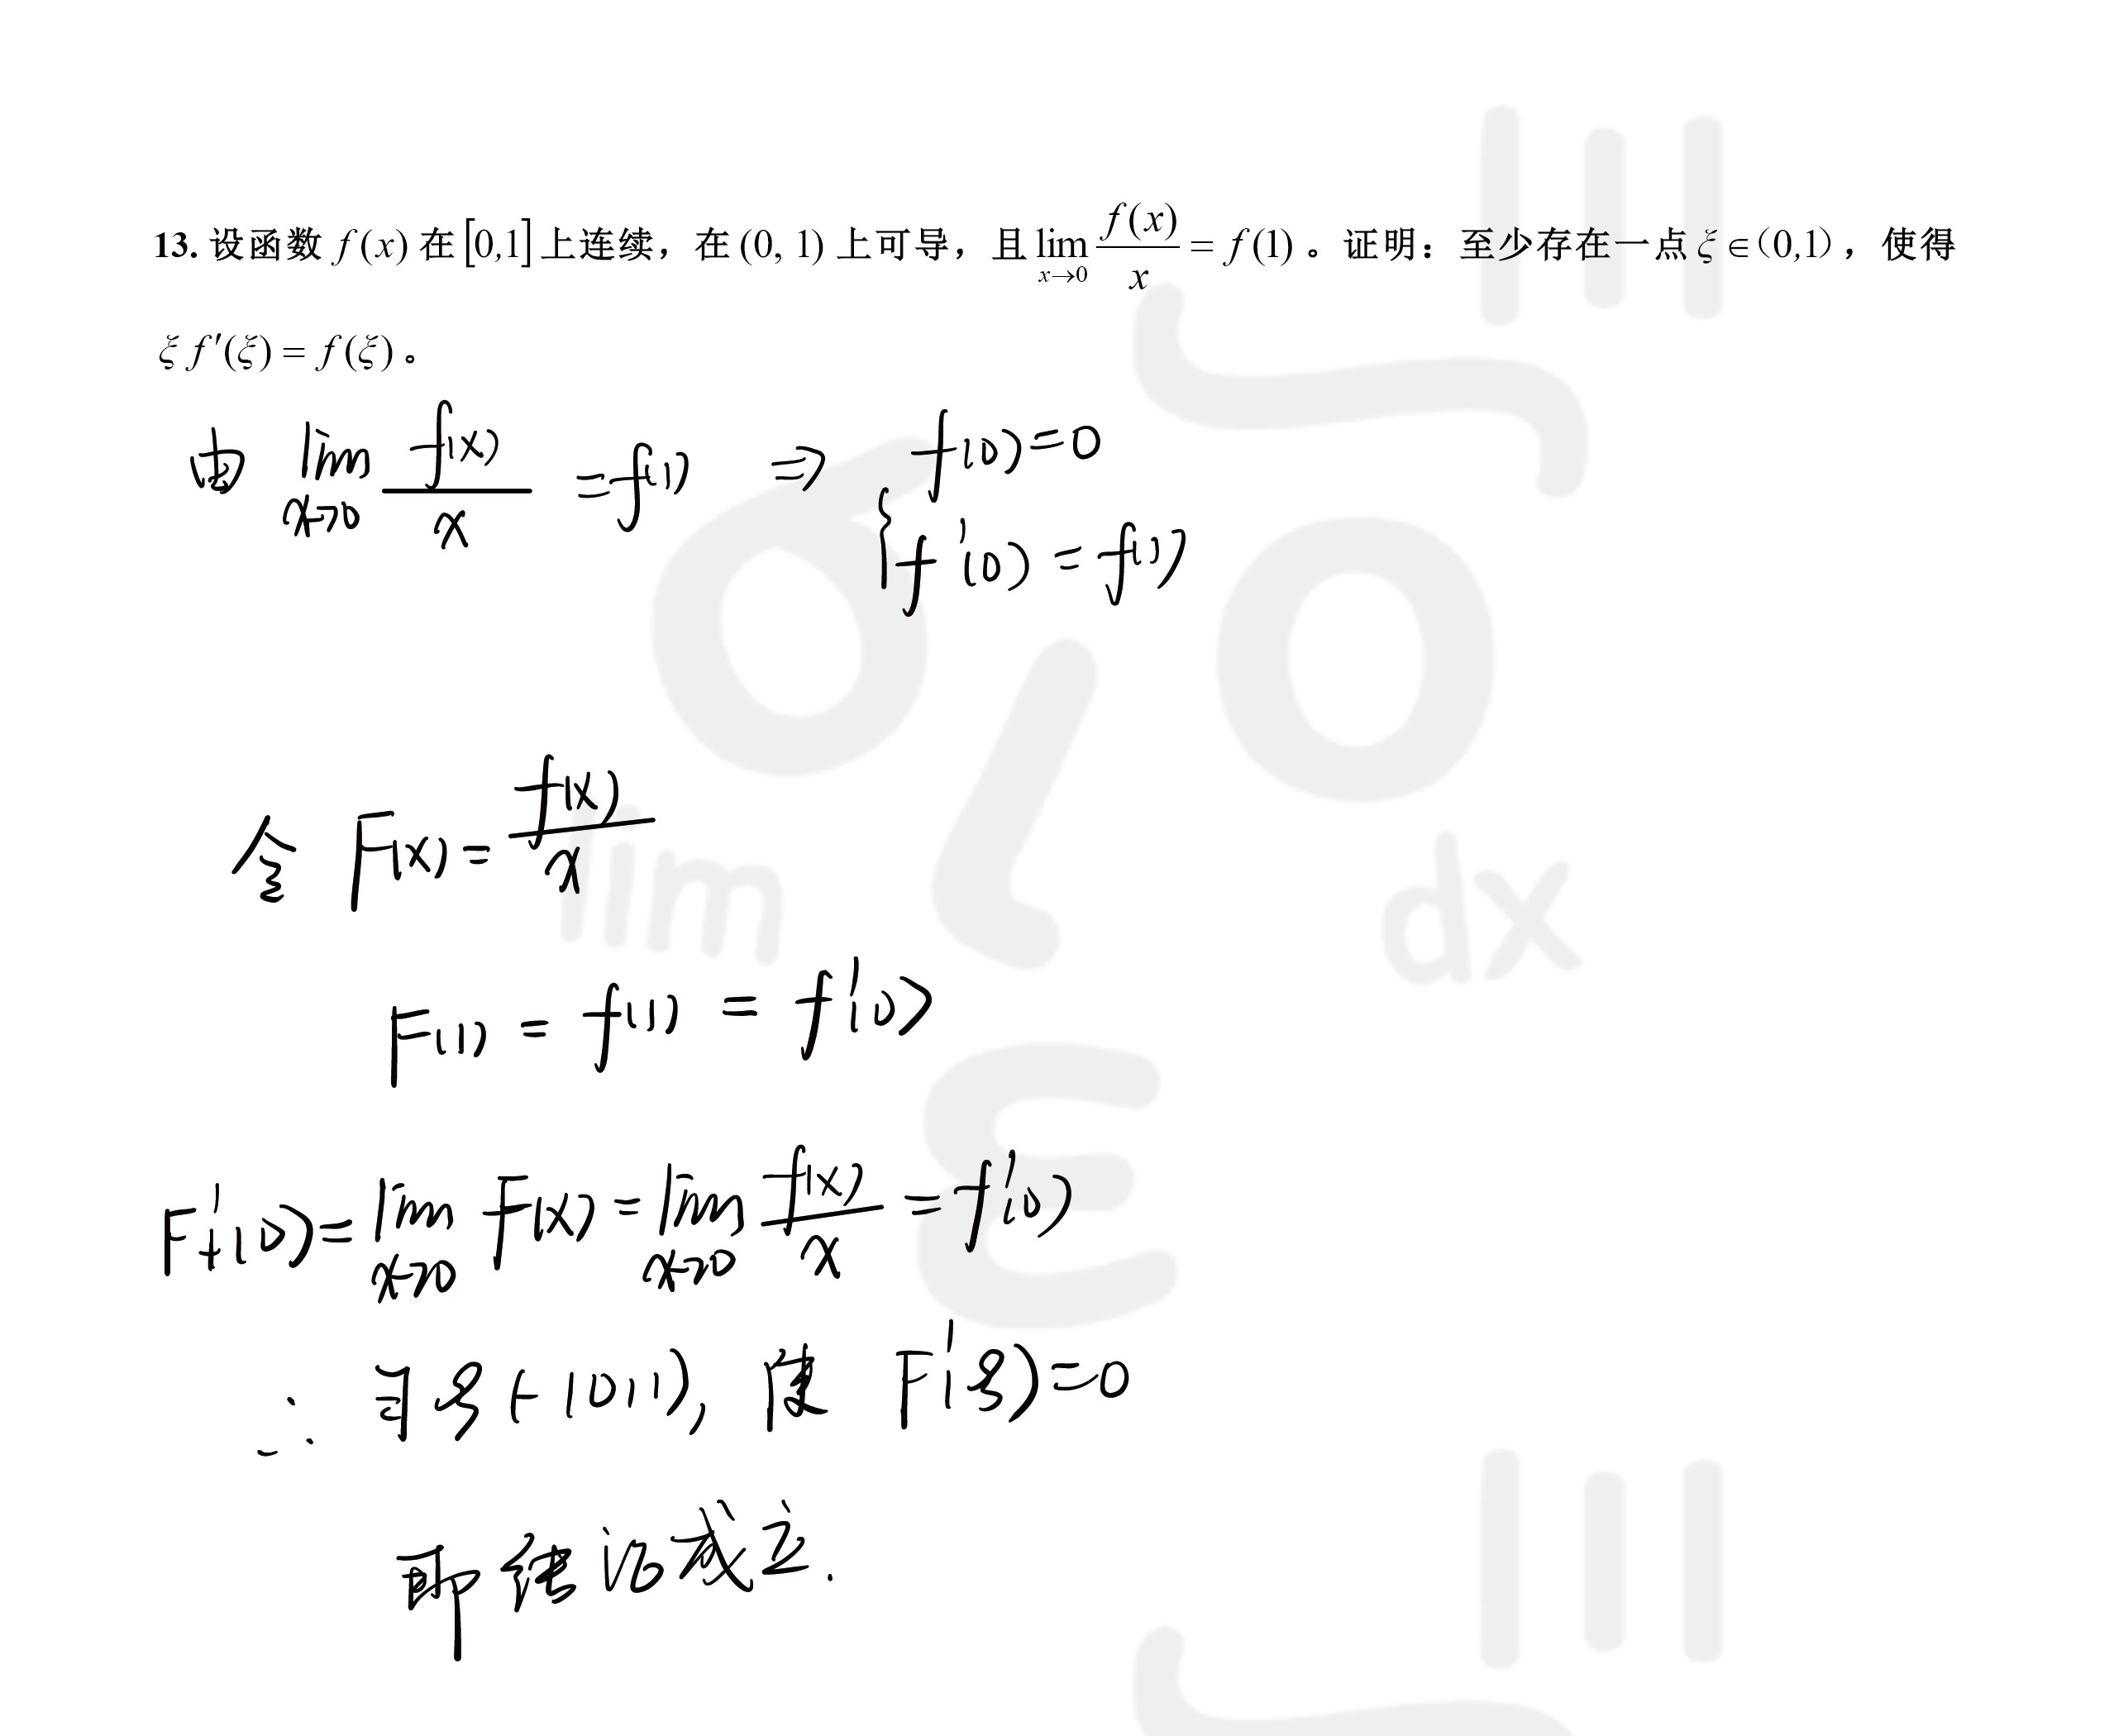 13. 设函数 f(x) 在[0,1]上连续，在(0, 1)上可导，且 lim_{x→0} f(x)/x = f(1)。证明：至少存在一点 ξ∈(0,1)，使得
ξ f′(ξ) = f(ξ)。
由 lim_{x→0} f(x)/x = f(1) ⇒ { f(0)=0
f′(0) = f(1)
令 F(x) = f(x)/x
F(1) = f(1) = f′(0)
F′₊(0) = lim_{x→0} F(x) = lim_{x→0} f(x)/x = f′(0)
∴ ∃ξ∈(0,1), 使 F′(ξ)=0
即结论成立.
lim
dx
ε